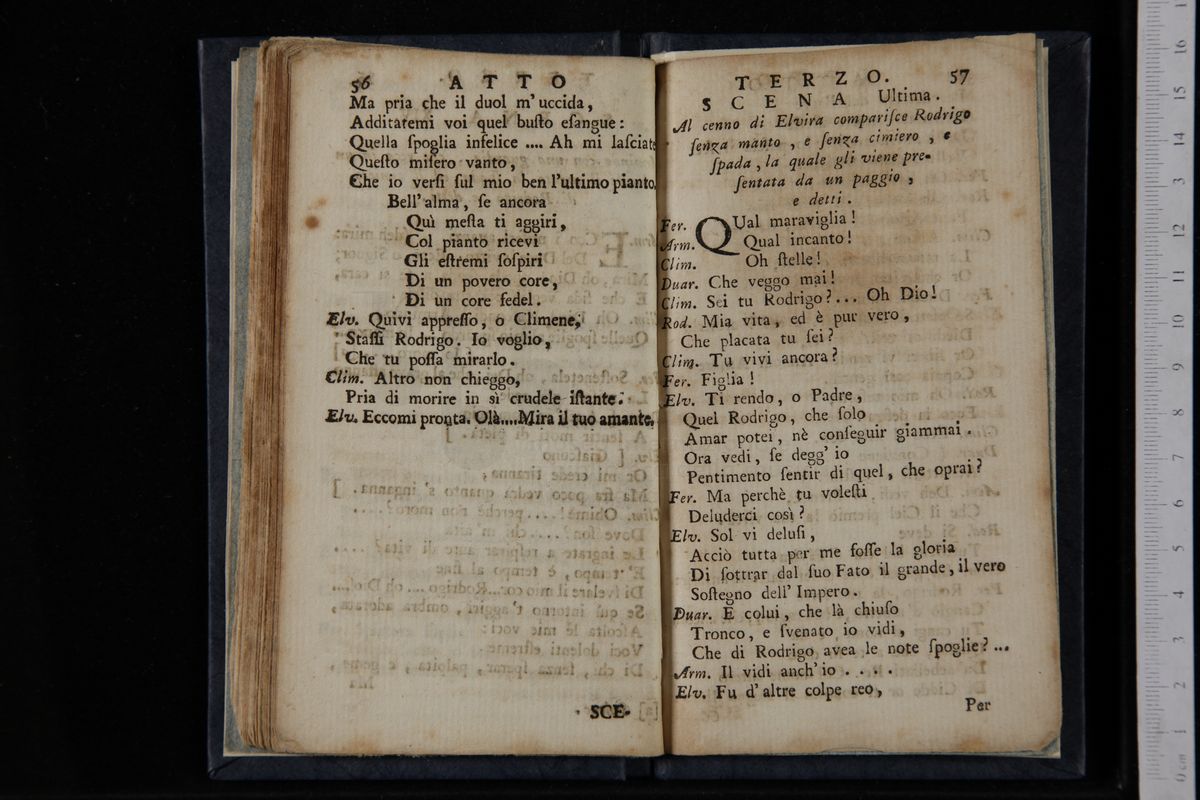 56 ATTO
Ma pria che il duol m'uccida,
Additatemi voi quel buſto eſangue:
Quella ſpoglia infelice .... Ah mi laſciate
Queſto miſero vanto,
Che io verſi ſul mio ben l'ultimo pianto.
Bell'alma, ſe ancora
Quì meſta ti aggiri,
Col pianto ricevi
Gli eſtremi ſoſpiri
Di un povero core,
Di un core fedel.
Elv. Quivi appreſſo, o Climene,
Staſſi Rodrigo. Io voglio,
Che tu poſſa mirarlo.
Clim. Altro non chieggo,
Pria di morire in sì crudele iſtante.
Elv. Eccomi pronta. Olà....Mira il tuo amante.
SCE-
TERZO. 57
SCENA Ultima.
Al cenno di Elvira compariſce Rodrigo
ſenza manto, e ſenza cimiero, e
ſpada, la quale gli viene pre-
ſentata da un paggio,
e detti.
Fer. QUal maraviglia!
Arm. Qual incanto!
Clim. Oh ſtelle!
Duar. Che veggo mai!
Clim. Sei tu Rodrigo?... Oh Dio!
Rod. Mia vita, ed è pur vero,
Che placata tu ſei?
Clim. Tu vivi ancora?
Fer. Figlia!
Elv. Ti rendo, o Padre,
Quel Rodrigo, che ſolo
Amar potei, nè conſeguir giammai.
Ora vedi, ſe degg'io
Pentimento ſentir di quel, che oprai?
Fer. Ma perchè tu voleſti
Deluderci così?
Elv. Sol vi deluſi,
Acciò tutta per me foſſe la gloria
Di ſottrar dal ſuo Fato il grande, il vero
Soſtegno dell'Impero.
Duar. E colui, che là chiuſo
Tronco, e ſvenato io vidi,
Che di Rodrigo avea le note ſpoglie?...
Arm. Il vidi anch'io . . . .
Elv. Fu d'altre colpe reo,
Per
0 cm 1 2 3 4 5 6 7 8 9 10 11 12 13 14 15 16